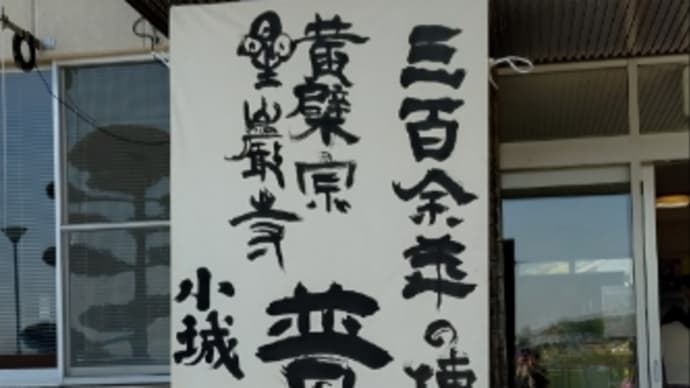 三百余年の
黄檗宗
星巌寺
普
小城